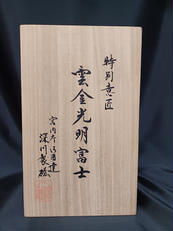 特別意匠
雲金光明富士
宮内庁御用達
深川製磁